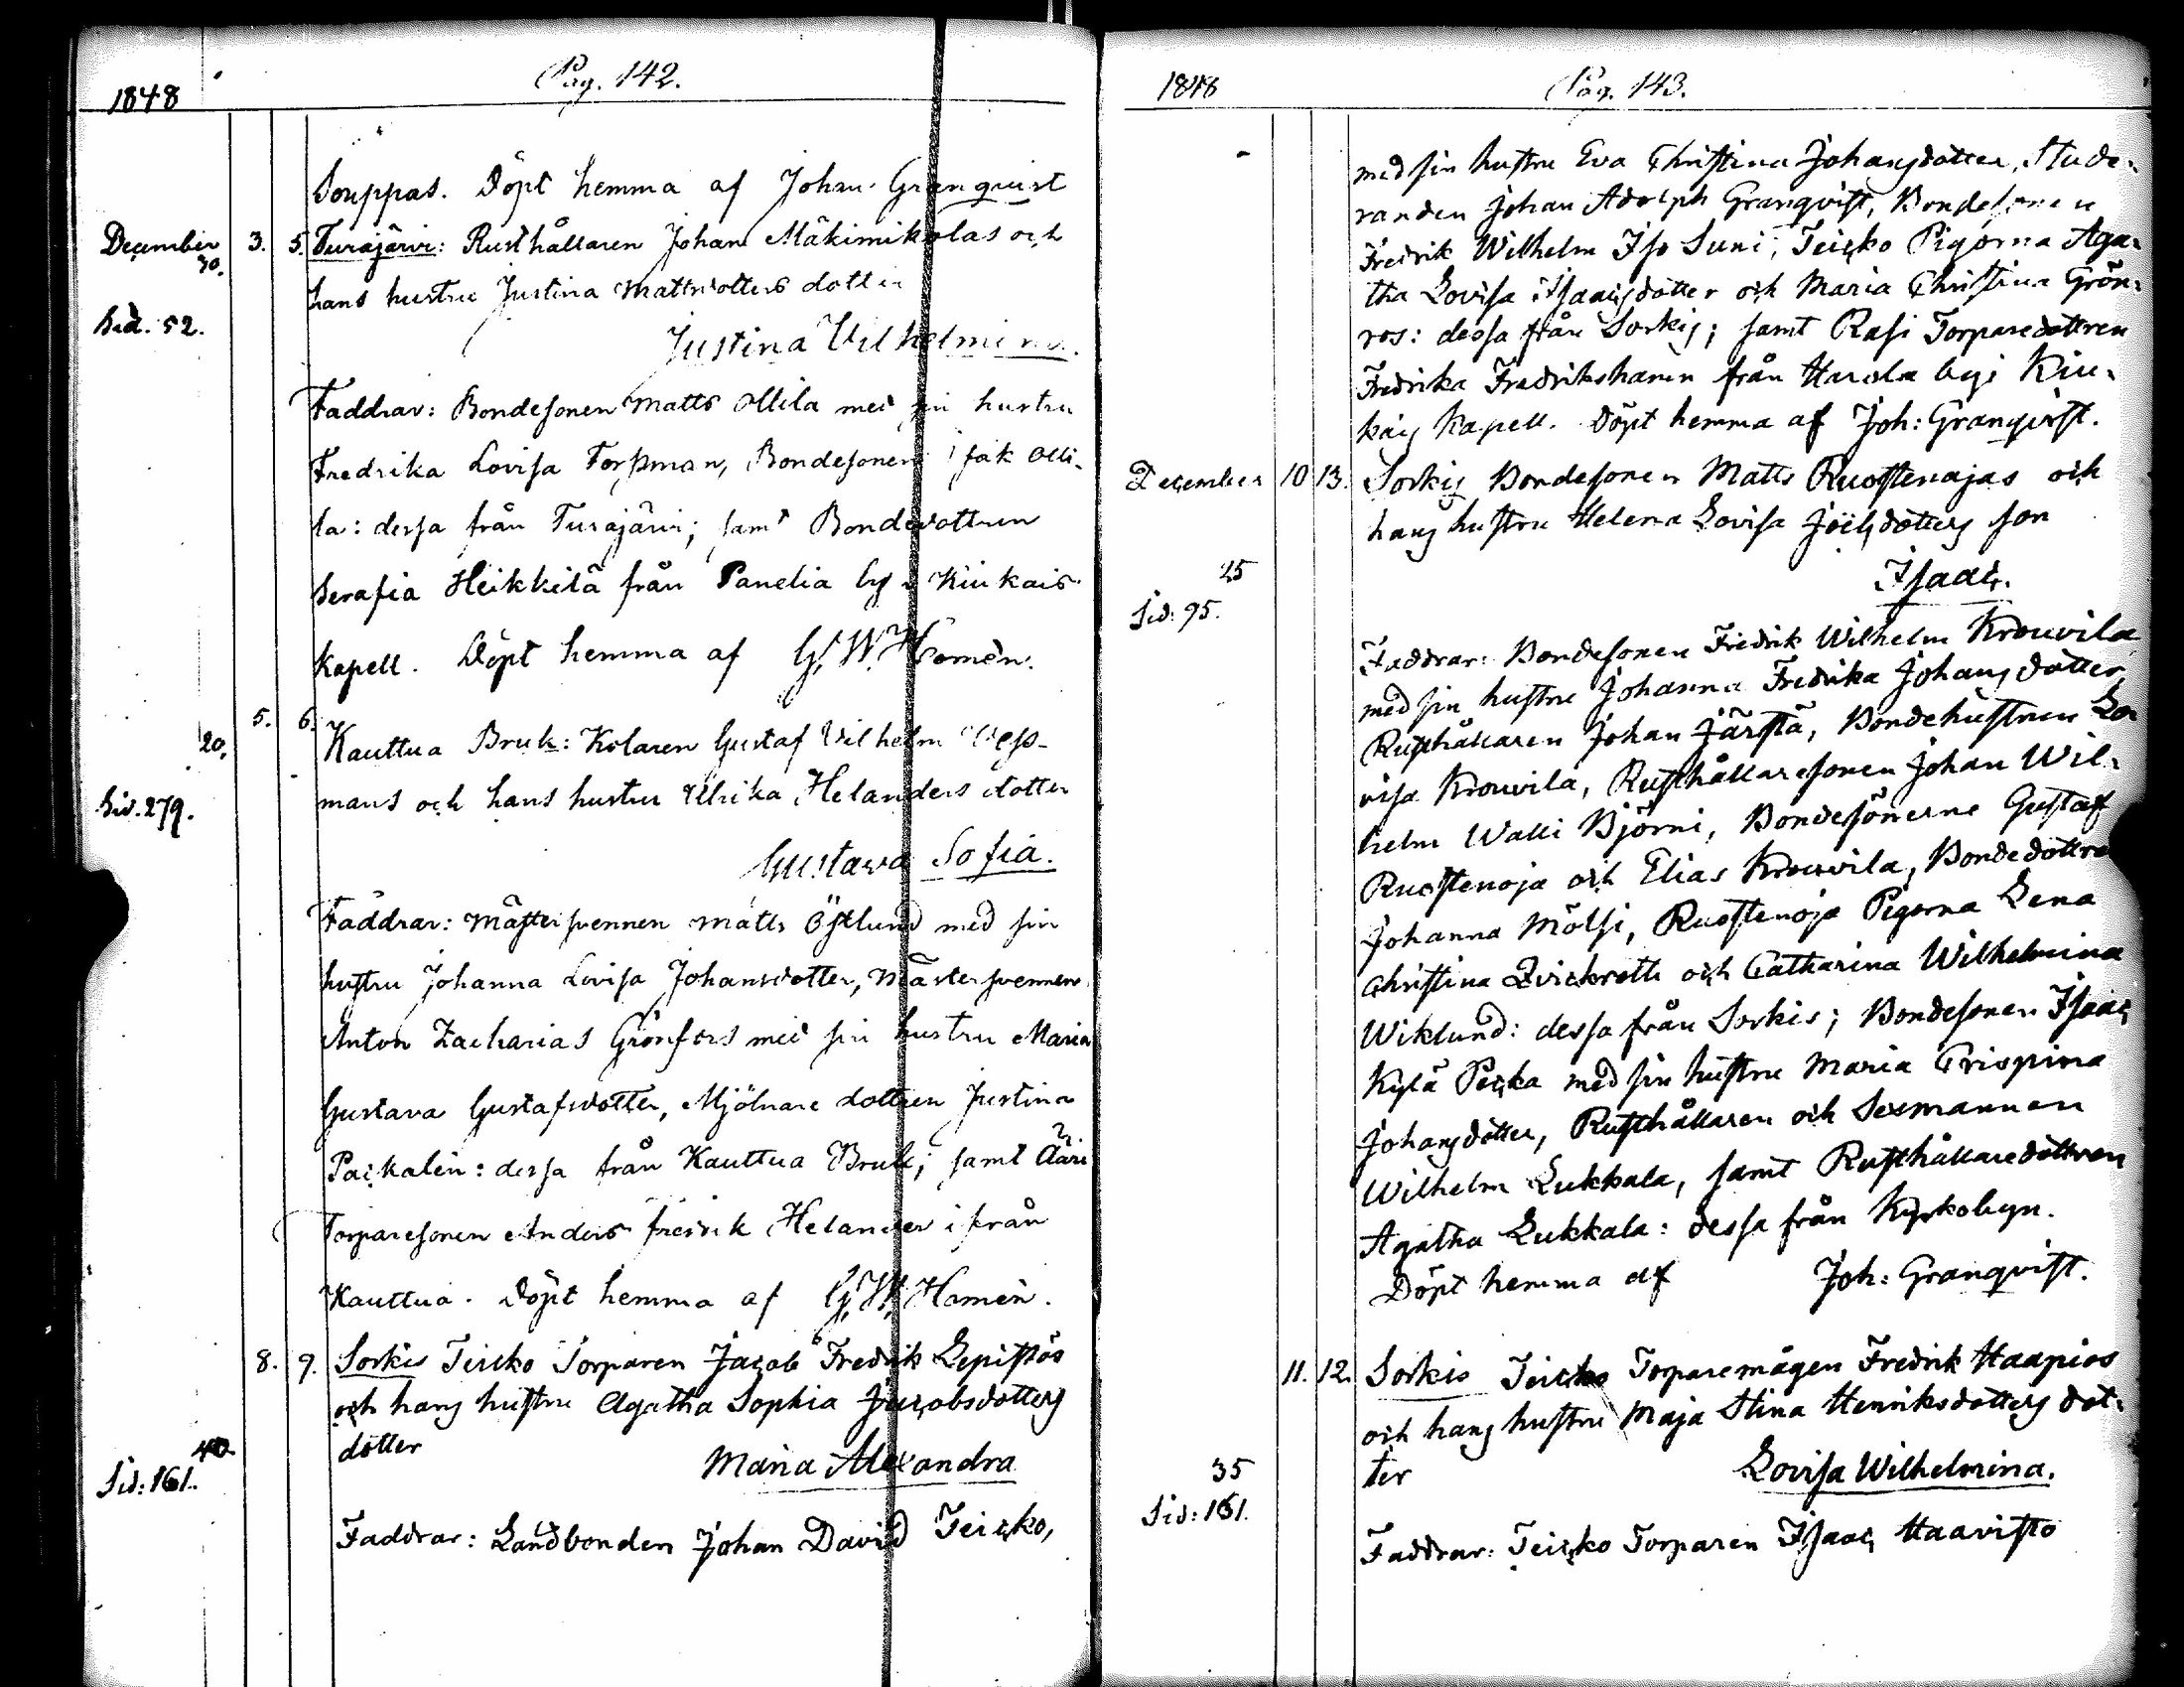 1848
Pag. 142.
Souppas. Döpt hemma af Johan Granqvist
December 3. 5. Turajärvi: Rusthållaren Johan Mäkimikolas och
30.
hans hustru Justina Mattsdotters dotter
Sid. 52.
Justina Vilhelmina.
Faddrar: Bondesonen Matts Ollila med sin hustru
Fredrika Lovisa Forssman, Bondesonen Isak Olli-
la: dessa från Turajärvi; samt Bondedottren
Serafia Heikkilä från Panelia by i Kiukais
Kapell. Döpt hemma af G. W. Homén.
5. 6.
20. Kauttua Bruk: Kolaren Gustaf Vilhelm Wess-
mans och hans hustru Ulrika Helanders dotter
Sid. 279.
Gustava Sofia.
Faddrar: Mästersvennen Matts Östlund med sin
hustru Johanna Lovisa Johansdotter, Mästersvennen
Anton Zacharias Grönfors med sin hustru Maria
Gustava Gustafsdotter, Mjölnare dottren Justina
Packalén: dessa från Kauttua Bruk; samt Ääri
Torparesonen Anders Fredrik Helander ifrån
Kauttua. Döpt hemma af G. W. Homén.
8. 9. Sorkis Teicko Torparen Jacob Fredrik Lepistös
och hans hustru Agatha Sophia Jacobsdotters
dotter
40.
Maria Alexandra
Sid: 161.
Faddrar: Landbonden Johan David Teicko,
1848
Pag. 143.
med sin hustru Eva Christina Johansdotter, Stude-
randen Johan Adolph Granqvist, Bondesonen
Fredrik Wilhelm Iso Suni, Teicko Pigorna Aga-
tha Lovisa Isaacsdotter och Maria Christina Grön-
ros: dessa från Sorkis; samt Rasi Torparedottren
Fredrika Fredrikshanen från Harola by i Kiu-
kais Kapell. Döpt hemma af Joh: Granqvist.
December 10 13. Sorkis Bondesonen Matts Ruostenojas och
hans hustru Helena Lovisa Joëlsdotters son
25
Isaac.
Sid: 95.
Faddrar: Bondesonen Fredrik Wilhelm Krouvila
med sin hustru Johanna Fredrika Johansdotter,
Rusthållaren Johan Järstä, Bondehustrun Lo-
visa Krouvila, Rusthållaresonen Johan Wil-
helm Walli Björni, Bondesönerne Gustaf
Ruostenoja och Elias Krouvila, Bondedottren
Johanna Mölsi, Ruostenoja Pigorna Lena
Christina Qvickroth och Catharina Wilhelmina
Wiklund: dessa från Sorkis; Bondesonen Isaac
Kylä Pecka med sin hustru Maria Crispina
Johansdotter, Rusthållaren och Sexmannen
Wilhelm Lukkala, samt Rusthållaredottren
Agatha Lukkala: dessa från Kyrkobyn.
Döpt hemma af Joh: Granqvist.
11. 12. Sorkis Teicko Torparemågen Fredrik Haapios
och hans hustru Maja Stina Henriksdotters dot-
ter Lovisa Wilhelmina.
35
Sid: 161.
Faddrar: Teicko Torparen Isaac Haavisto